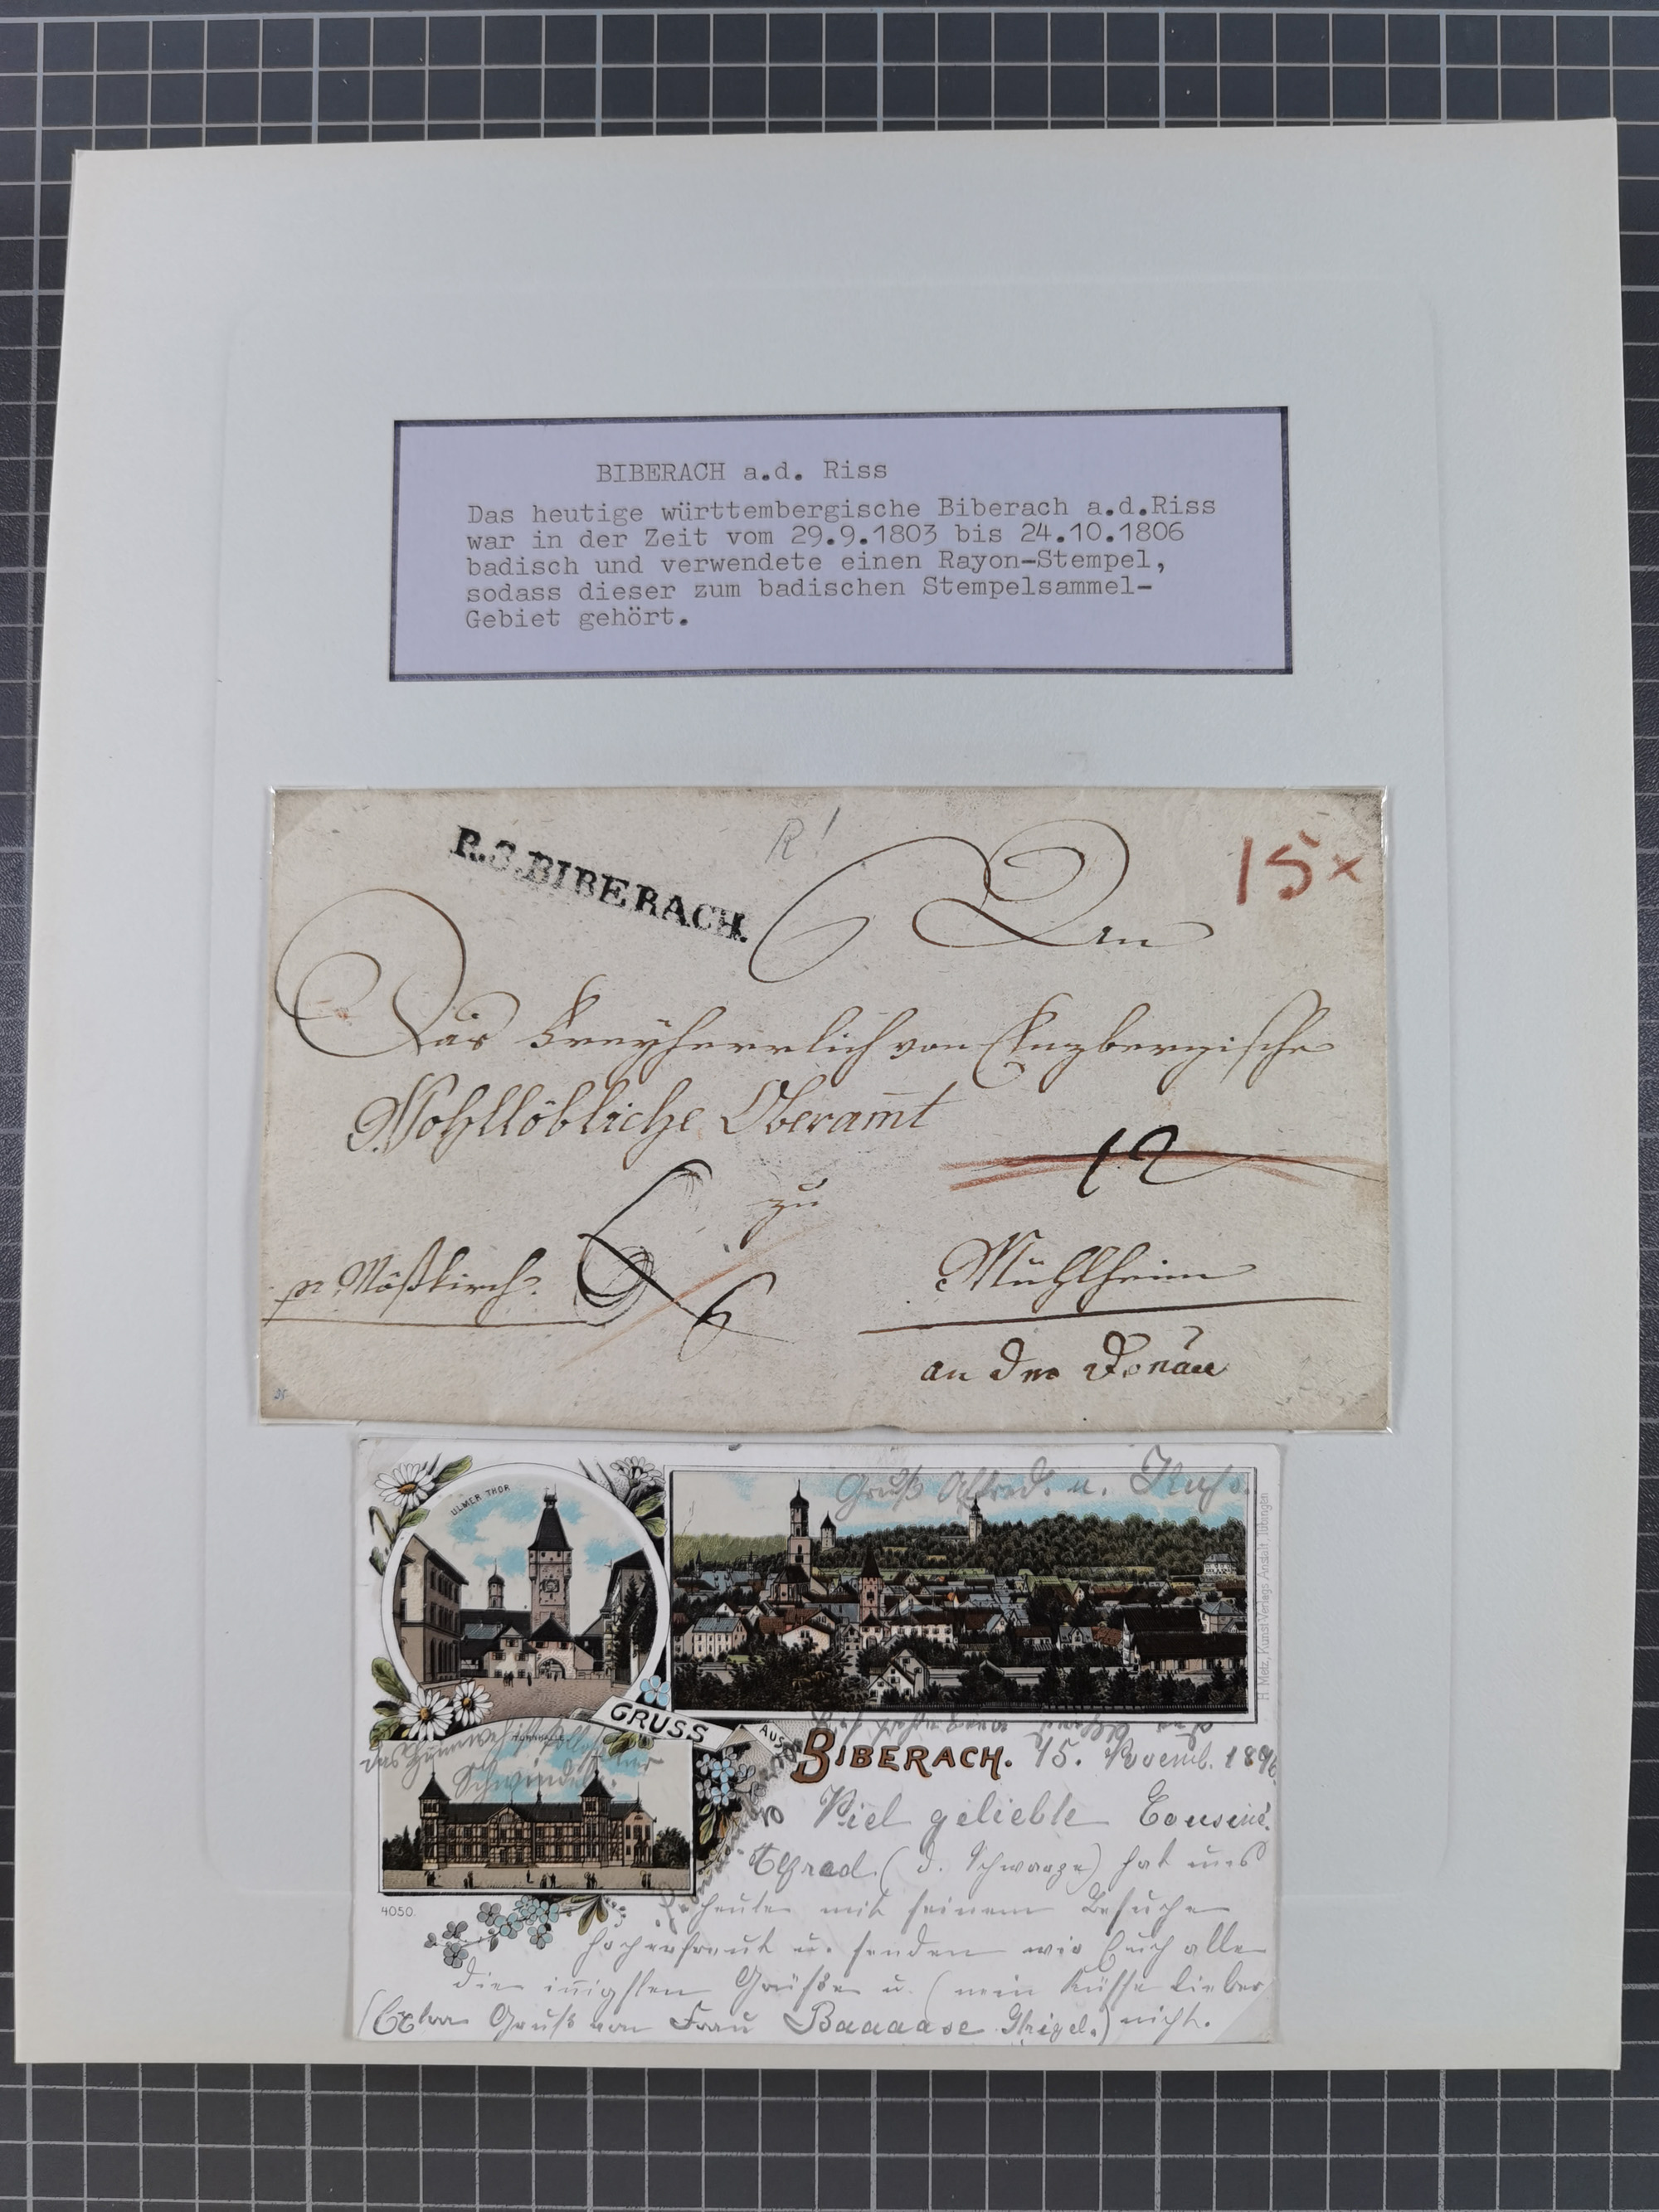 BIBERACH a.d. Riss
Das heutige württembergische Biberach a.d.Riss
war in der Zeit vom 29.9.1803 bis 24.10.1806
badisch und verwendete einen Rayon-Stempel,
sodass dieser zum badischen Stempelsammel-
Gebiet gehört.
R.3.BIBERACH.
R!
15x
An
Das Freyherrlich von Enzbergische
Wohllöbliche Oberam̄t
12
zu
Mühlheim
pr Mößkirch.
6
an der Donau
ULMER THOR
Gruß Alfred. u.
H. Metz, Kunst-Verlags Anstalt, Tübingen
GRUSS
AUS
BIBERACH. 15. Novemb. 1896.
Schwindel.
Viel geliebte Cousine.
(d. Schwarze) hat uns
heute mit seinem Besuche
4050.
hocherfreut u. senden wir Euch alle
die in̄igsten Grüße u. (nein Küsse lieber
(Extra Gruß von Frau Baaaase) nicht.